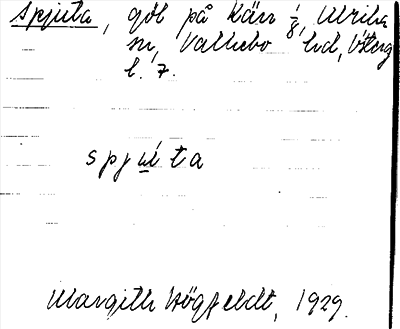 Spjuta, göl på Kärr 1/8, Ulrika
sn, Valkebo hd, Österg
l. 7.
spjuta
Margith Högfeldt, 1929.